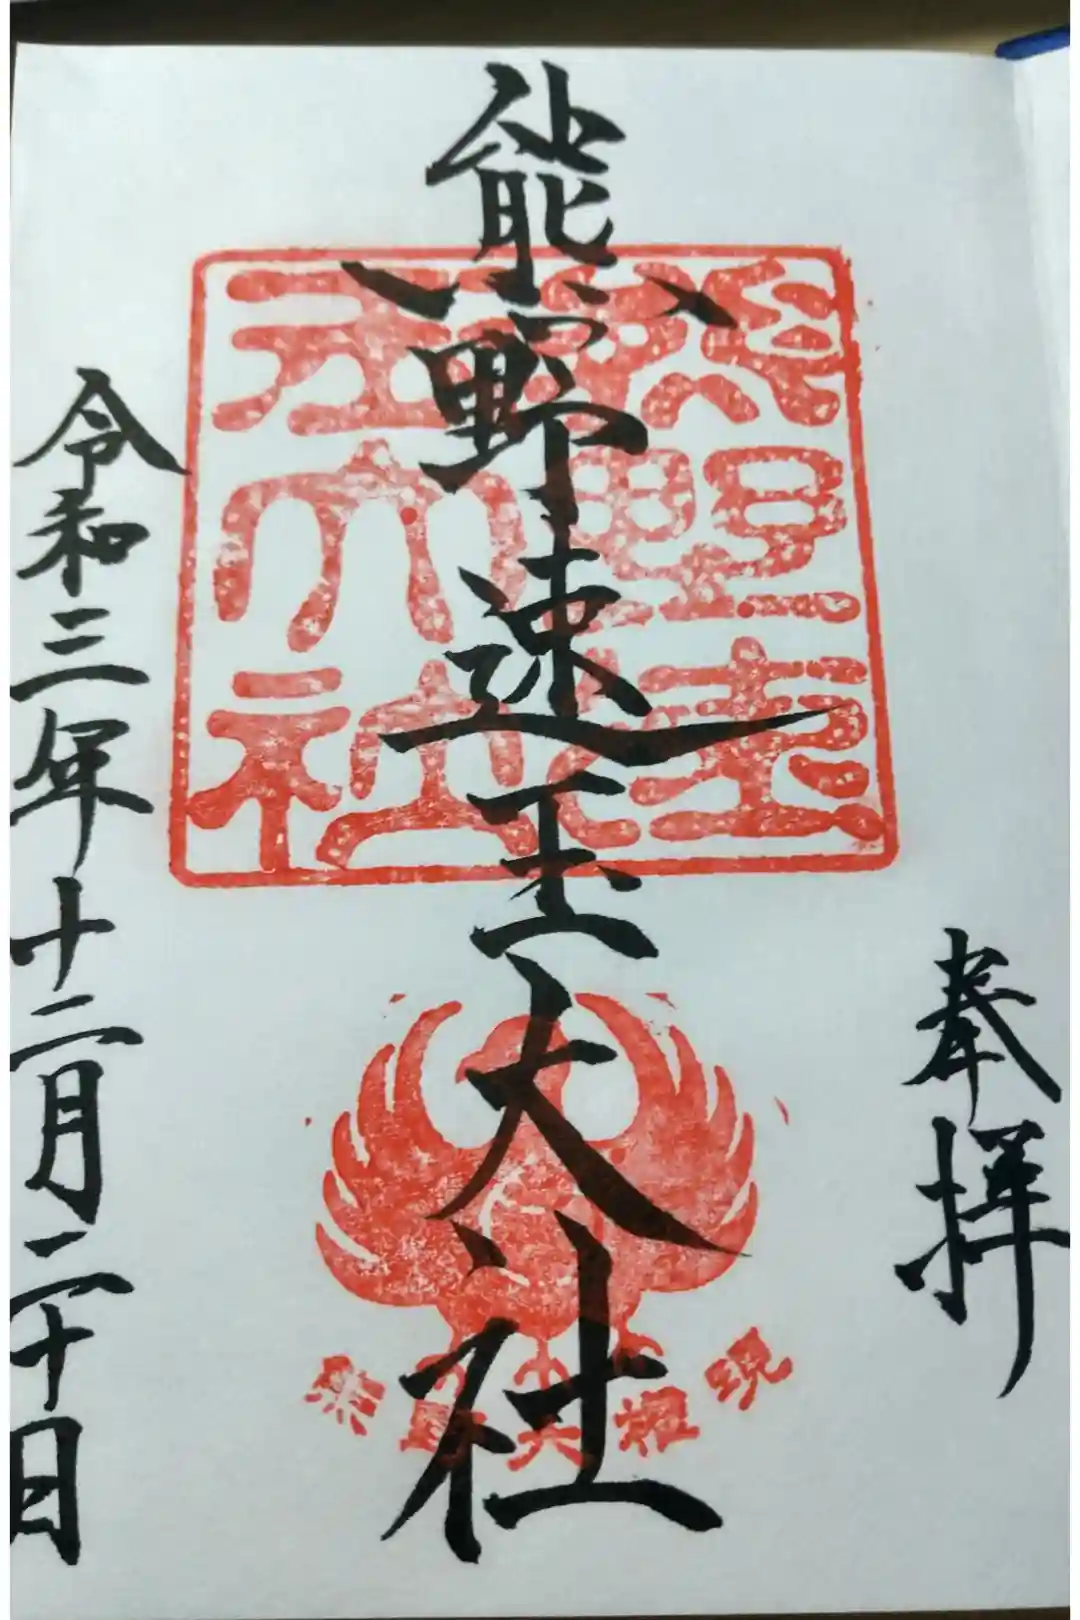 奉拝
熊野速玉大社
令和三年十二月二十日
熊野大権現